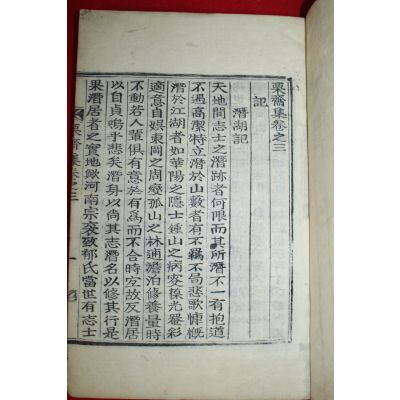 栗齋集卷之三
記
潛湖記
天地間志士之潛跡者何限而其所潛不一有抱道
不遇高潔特立潛於山藪者有不羈不局悲歌慷慨
潛於江湖者如華陽之隱士鍾山之病客葆光鏟彩
適意自娛東岡之周燮孤山之林逋澹泊修養量時
不動若人輩俱有意於有爲而不合時宜故反潛居
以自貞嗚乎悲矣潛身以尙其志潛名以修其行是
果潛居者之實地歟河南宗袤致郁氏當世有志士
栗齋集卷之三
一